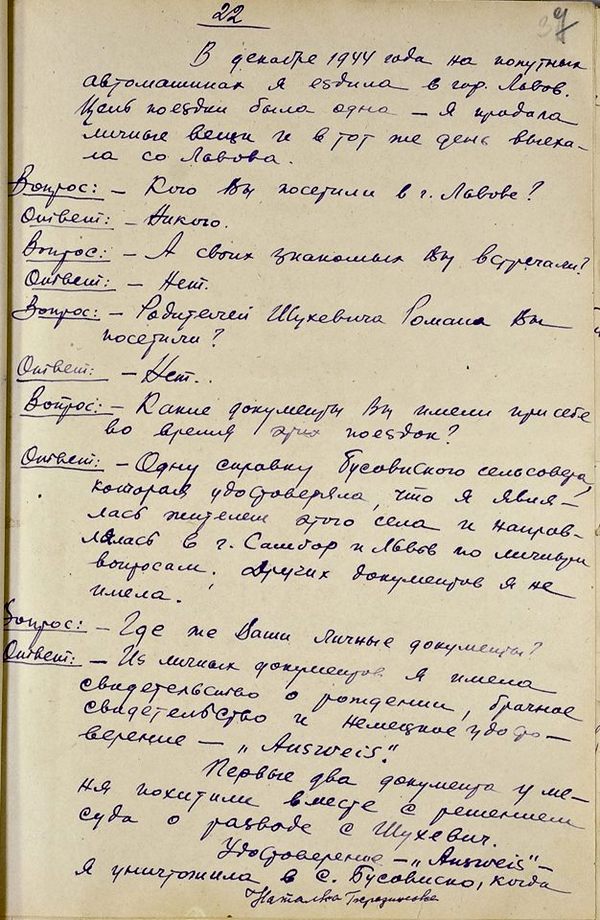 22
37
В декабре 1944 года на попутных
автомашинах я ездила в гор. Львов.
Цель поездки была одна – я продала
личные вещи и в тот же день выеха-
ла со Львова.
Вопрос: – Кого Вы посетили в г. Львове?
Ответ: – Никого.
Вопрос: – А своих знакомых Вы встречали?
Ответ: – Нет.
Вопрос: – Родителей Шухевича Романа Вы
посетили?
Ответ: – Нет.
Вопрос: – Какие документы Вы имели при себе
во время этих поездок?
Ответ: – Одну справку Бусовиского сельсовета,
которая удостоверяла, что я явля-
лась жителем этого села и направ-
лялась в г. Самбор и Львов по личным
вопросам. Других документов я не
имела.
Вопрос: – Где же Ваши личные документы?
Ответ: – Из личных документов я имела
свидетельство о рождении, брачное
свидетельство и немецкое удосто-
верение – „Ausweis“.
Первые два документа у ме-
ня похитили вместе с решением
суда о разводе с Шухевич.
Удостоверение – „Ausweis“ –
я уничтожила в с. Бусовиско, когда
Наталья